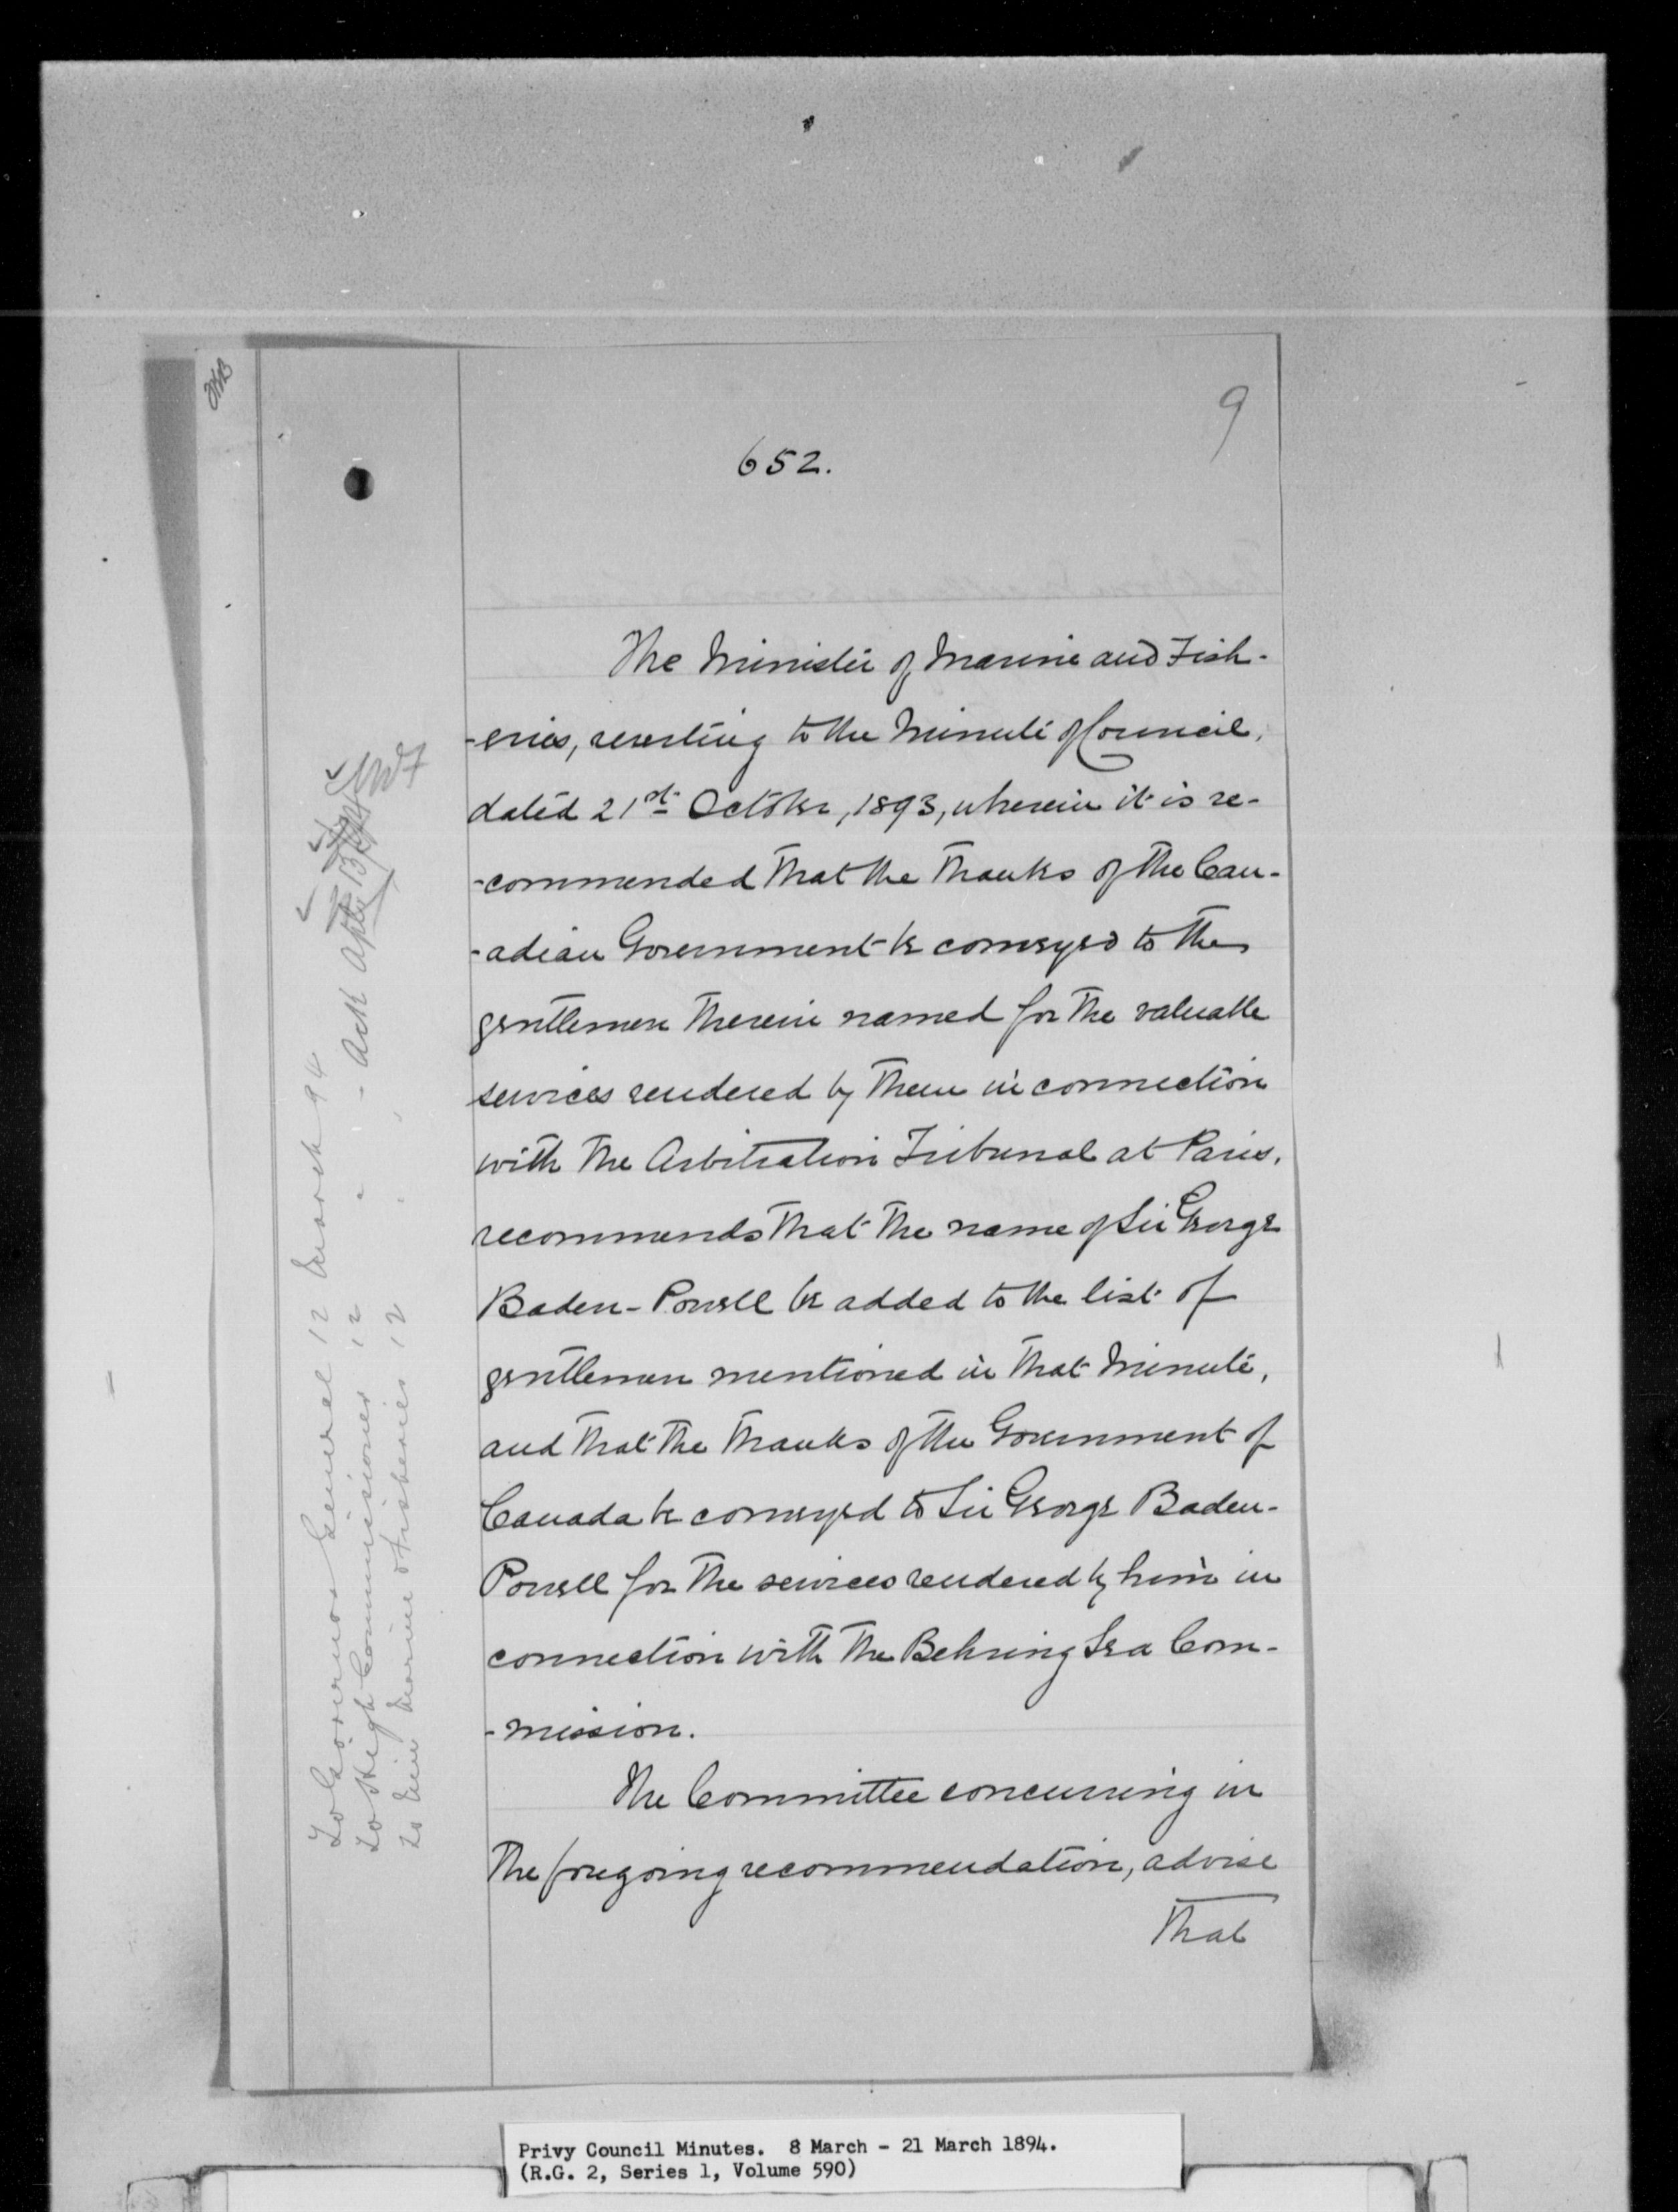 9
652.
The Minister of Marine and Fish-
-eries, reverting to the Minute of Council,
dated 21st October, 1893, wherein it is re-
-commended that the thanks of the Can-
-adian Government be conveyed to the
gentlemen therein named for the valuable
services rendered by them in connection
with the Arbitration Tribunal at Paris,
recommends that the name of Sir George
Baden-Powell be added to the list of
gentlemen mentioned in that Minute,
and that the thanks of the Government of
Canada be conveyed to Sir George Baden-
Powell for the services rendered by him in
connection with the Behring Sea Com-
-mission.
The Committee concurring in
the foregoing recommendation, advise
that
To Governor General 12 March 94
To High Commissioner 12 " - Ack
To Min Marine & Fisheries 12 "
Privy Council Minutes. 8 March - 21 March 1894.
(R.G. 2, Series 1, Volume 590)